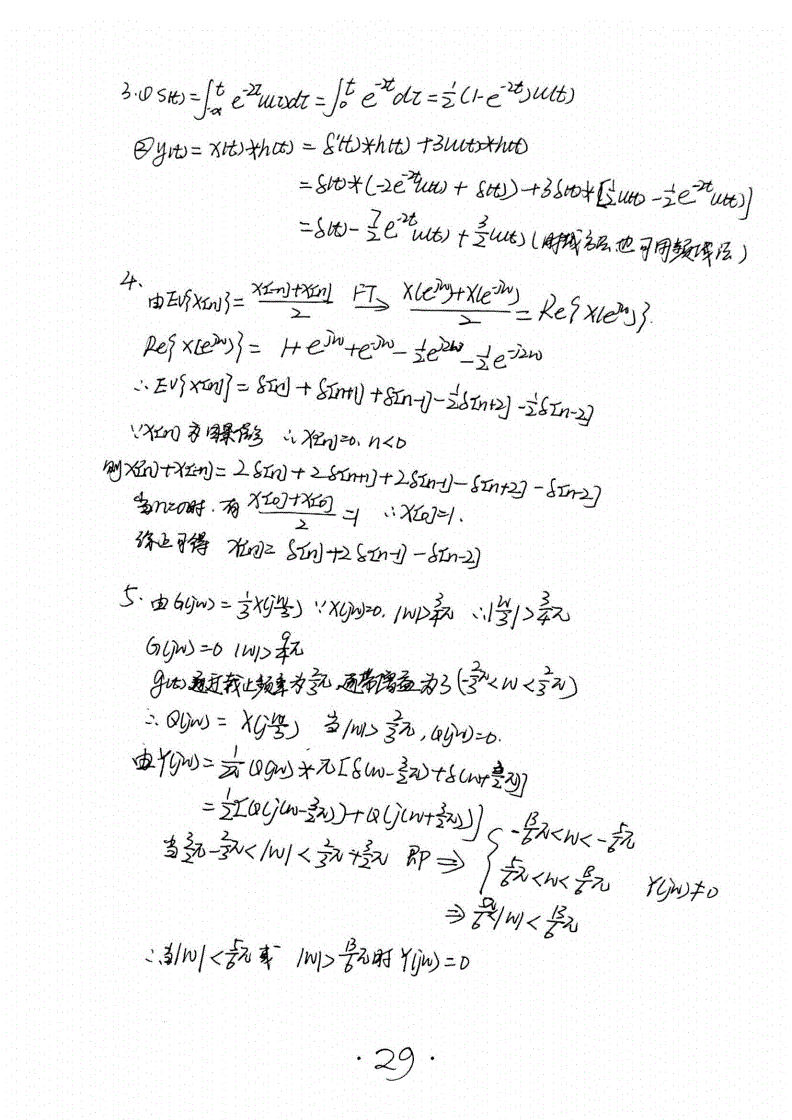 3.① S(t)=∫_{-∞}^{t} e^{-2τ}u(τ)dτ=∫_0^t e^{-2τ}dτ=½(1-e^{-2t})u(t)
② y(t)=x(t)*h(t)=δ'(t)*h(t)+3u(t)*h(t)
=δ(t)*(-2e^{-2t}u(t)+δ(t))+3δ(t)*[½u(t)-½e^{-2t}u(t)]
=δ(t)-7/2 e^{-2t}u(t)+3/2 u(t) (时域方法也可用频域法)
4.
由Ev{x[n]}=(x[n]+x[n])/2 FT→ (X(e^{jw})+X(e^{-jw}))/2=Re{X(e^{jw})}.
Re{X(e^{jw})}=1+e^{jw}+e^{-jw}-½e^{j2w}-½e^{-j2w}
∴Ev{x[n]}=δ[n]+δ[n+1]+δ[n-1]-½δ[n+2]-½δ[n-2]
∵x[n]为因果信号 ∴x[n]=0, n<0
则x[n]+x[-n]=2δ[n]+2δ[n+1]+2δ[n-1]-δ[n+2]-δ[n-2]
当n=0时,有(x[0]+x[0])/2=1 ∴x[0]=1.
综上可得 x[n]=δ[n]+2δ[n-1]-δ[n-2]
5.由G(jw)=⅓X(jw/3) ∵X(jw)=0, |w|>¾π ∴|w/3|>¾π
G(jw)=0 |w|>9/4π
g(t)通过截止频率为⅔π,通带增益为3(-⅔π<w<⅔π)
∴Q(jw)=X(jw/3) 当|w|>⅔π, Q(jw)=0.
由Y(jw)=1/2π Q(jw)*π[δ(w-3/2π)+δ(w+3/2π)]
=½[Q(j(w-3/2π))+Q(j(w+3/2π))]
当3/2π-⅔π<|w|<⅔π+3/2π 即⇒ { -13/6π<w<-5/6π
5/6π<w<13/6π Y(jw)≠0
⇒5/6π<|w|<13/6π
∴当|w|<5/6π或 |w|>13/6π时Y(jw)=0
·29·